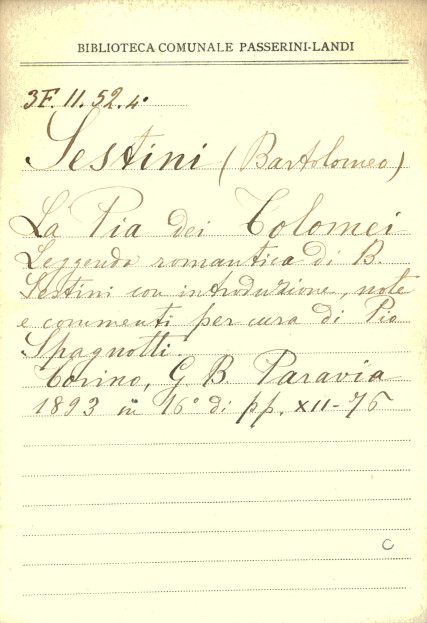 BIBLIOTECA COMUNALE PASSERINI-LANDI
3F. 11. 52. 4°
Sestini (Bartolomeo)
La Pia dei Tolomei
Leggenda romantica di B.
Sestini con introduzione, note
e commenti per cura di Pio
Spagnotti.
Torino, G. B. Paravia
1893 in 16° di pp. XII-76
C